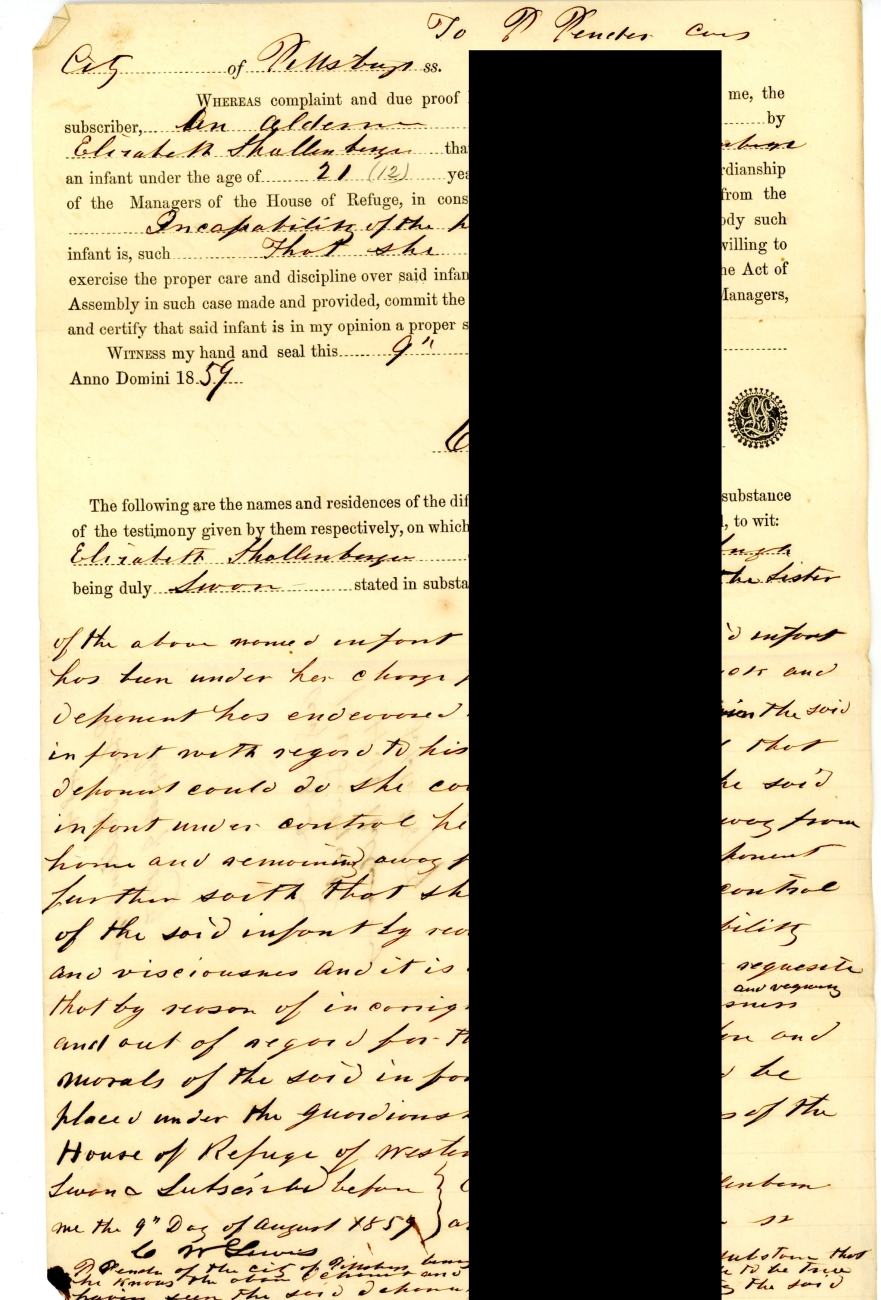 To P Pender
City of Pittsburgh ss.
WHEREAS complaint and due proof me, the
subscriber, An Alderman by
Elizabeth Shallenberger tha
an infant under the age of 21 (12) yea rdianship
of the Managers of the House of Refuge, in cons from the
Incapability of the p ody such
infant is, such That she willing to
exercise the proper care and discipline over said infan he Act of
Assembly in such case made and provided, commit the Managers,
and certify that said infant is in my opinion a proper s
WITNESS my hand and seal this 9"
Anno Domini 1859
LS
The following are the names and residences of the dif substance
of the testimony given by them respectively, on which , to wit:
Elizabeth Shallenberger
being duly Sworn stated in substa the Sister
of the above named infant d infant
has been under her charge p and
deponent has endeavored the said
infant with regard to his that
deponent could do she con he said
infant under control he way from
home and remaining away f ponent
further saith that sh control
of the said infant by reas bility
and visciousnes and it is requesete
that by reason of incorrig and vagrancy
sness
and out of regard for th and
morals of the said infan be
placed under the guardians s of the
House of Refuge of Wester
Sworn & Subscribed before
me the 9" Day of August 1859
C W Lewis
P Pender of the city of Pittsburgh being that
he knows the above and to be true
having seen the said depone the said